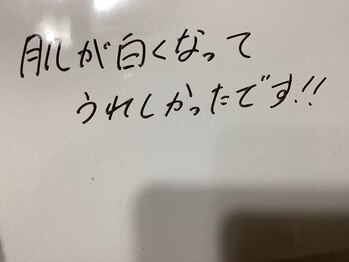 肌が白くなって
うれしかったです!!